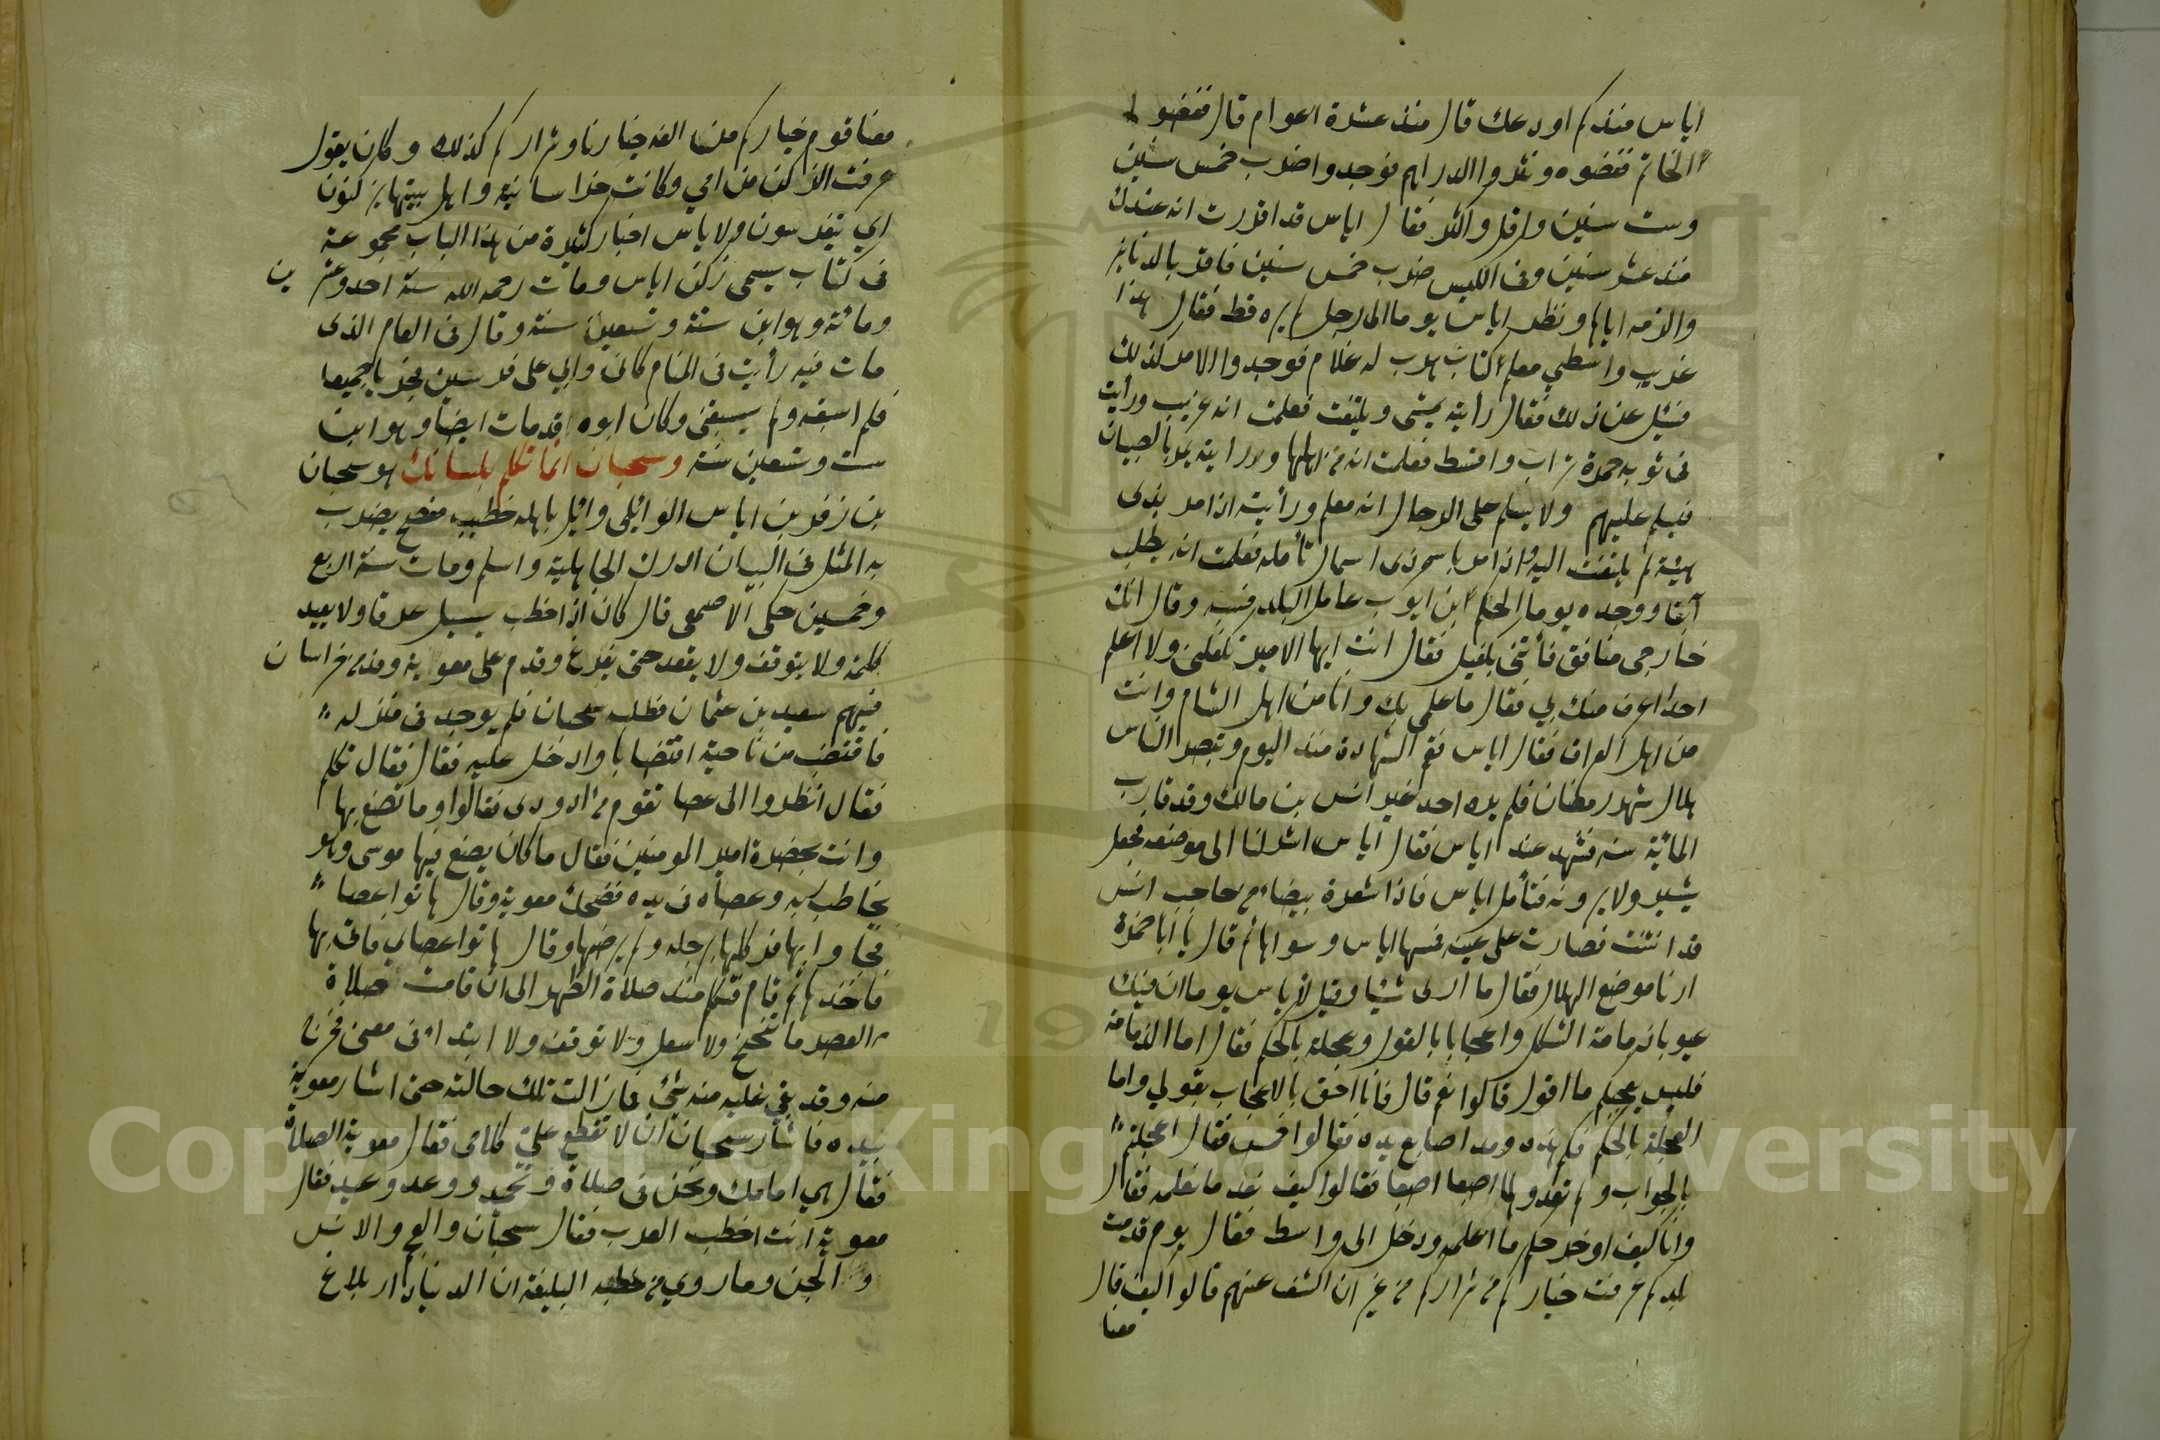 اياس منذ كم اودعك قال منذ عشرة اعوام قال ففضوا
الخاتم ففضوه ونثروا الدراهم فوجدوا ضرب خمس سنين
وست سنين واقل واكثر فقال اياس قد اقررت انه عندك
منذ عشر سنين وفى الكيس ضرب خمس سنين فاقر بالدنانير
والزمه اياها ونظر اياس يوما الى رجل لم يره قط فقال هذا
غريب واسطي معلم كتاب هرب له غلام فوجدوا الامر كذلك
فسئل عن ذلك فقال رأيته يمشى ويلتفت فعلمت انه غريب ورأيت
فى ثوبه حمرة تراب واسط فعلمت انه من اهلها ورايته يمر بالصبيان
فيسلم عليهم ولا يسلم على الرجال انه معلم ورأيته اذا مر بذى
هيئة لم يلتفت اليه واذا مر باسود ذى اسمال تأمله فعلمت انه يطلب
آبقا ووجده يوما الحكم ابن ايوب عامل البلد فسبه وقال انك
خارجى منافق فأتنى بكفيل فقال انت ايها الامير تكفلنى ولا اعلم
احدا اعرف منك بي فقال ما علمى بك وانا من اهل الشام وانت
من اهل العراق فقال اياس نعم الشهادة منذ اليوم وتبصر الناس
هلال شهر رمضان فلم يره احد غير انس بن مالك وقد قارب
المائة سنه فشهد عند اياس فقال اياس اشر لنا الى موضعه فجعل
يشير ولا يرونه فتأمل اياس فاذا شعرة بيضاء من حاجب انس
قد انثنت فصارت على عينه فمسها اياس وسواها ثم قال يا ابا حمزة
ارنا موضع الهلال فقال ما ارى شيئا وقيل لأياس يوما ان فيك
عيوبا دمامة الشكل واعجابا بالقول وعجلة بالحكم فقال اما الدمامة
فليس بيدى اعجبكم ما اقول قالوا نعم قال فانا احق بالاعجاب بقولي واما
العجلة بالحكم فكم هذه ومد اصابع يده فقالوا خمس فقال اعجلتم
بالجواب ولم تعدوها اصبعا اصبعا فقالوا كيف نعد ما نعلمه فقال
وانا كيف اوخر حكم ما اعلمه ودخل الى واسط فقال يوم قدمت
بلدكم عرفت خياركم من شراركم من غير ان اكشف عنهم قالوا كيف قال
معنا
معنا قوم خياركم منا الفه خيارنا وشراركم كذلك وكان يقول
عرفت الزكن من امي وكانت خراسانية واهل بيتها يزكنون
اي يتفرسون ولاياس اخبار كثيرة من هذا الباب مجموعة
فى كتاب يسمى زكن اياس ومات رحمه الله سنة احد وعشرين
ومائة وهو ابن ستة وتسعين سنة وقال فى العام الذى
مات فيه رأيت فى المنام كانى وابي على فرسين فجريا جميعا
فلم اسبقه ولم يسبقنى وكان ابوه قد مات ايضا وهو ابن
ست وتسعين سنة وسحبان انما تكلم بلسانك هو سحبان
بن زفر بن اياس الوائلى وائل باهله خطيب مفصح يضرب
به المثل فى البيان ادرك الجاهلية واسلم ومات سنة اربع
وخمسين حكى الاصمعى قال كان اذا خطب يسيل عرقا ولا يعيد
كلمة ولا يتوقف ولا يقعد حتى يفرغ وقدم على معوية وفد من خراسان
فيهم سعيد بن عثمان فطلب سحبان فلم يوجد فى منزله
فاقتضب من ناحية اقتضابا وادخل عليه فقال فقال تكلم
فقال انظروا الى عصا تقوم من اودى فقالوا وما تصنع بها
وانت بحضرة امير المومنين فقال ما كان يصنع بها موسى وهو
يخاطب ربه وعصاه فى يده فضحك معوية وقال هاتوا عصا
فجاوا بها فركلها برجله ولم يرضها وقال هاتوا عصاي فاتى بها
فاخذها ثم قام فتكلم منذ صلاة الظهر الى ان قامت صلاة
العصر ما تنحنح ولا سعل ولا توقف ولا ابتدا فى معنى فخرج
منه وقد بقي عليه منه شئ فما زالت تلك حالته حتى اشار معوية
بيده فاشار سحبان ان لا تقطع على كلامى فقال معوية الصلاة
فقال هي امامك ونحن فى صلاة وتحميد ووعد ووعيد فقال
معوية انت اخطب العرب فقال سحبان والعجم والانس
والجن ومما روي من خطبه البليغة ان الدنيا دار بلاغ
Copyright © King Saud University